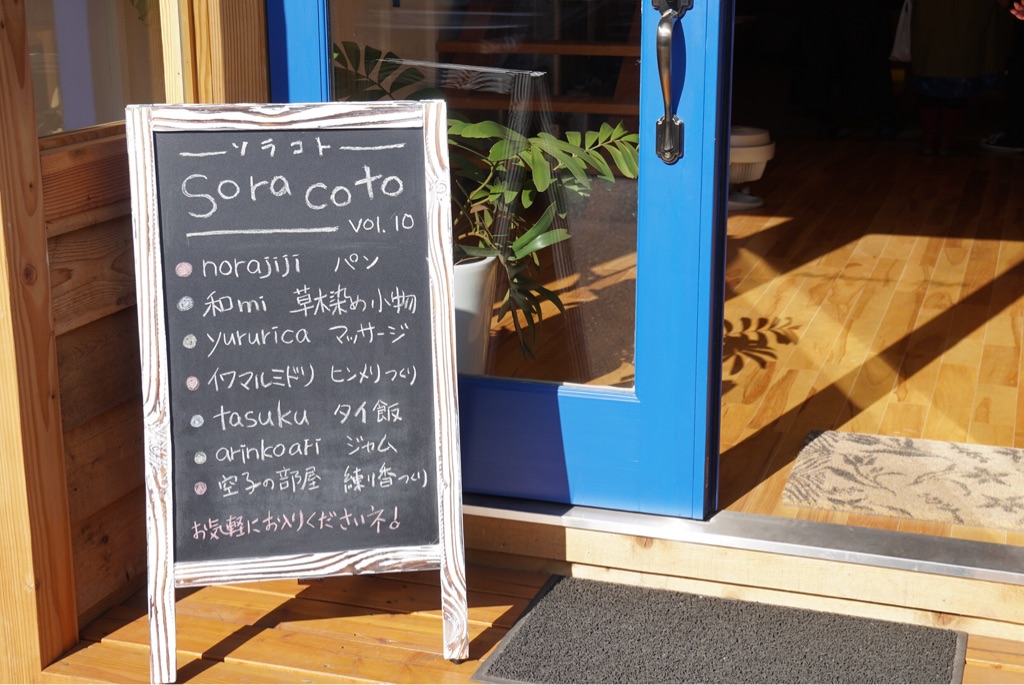 ソラコト
Soracoto
vol.10
norajiji パン
和mi 草木染め小物
yururica マッサージ
イワマルミドリ ヒンメリつくり
tasuku タイ飯
arinkoari ジャム
空子の部屋 練り香つくり
お気軽にお入りくださいネ!